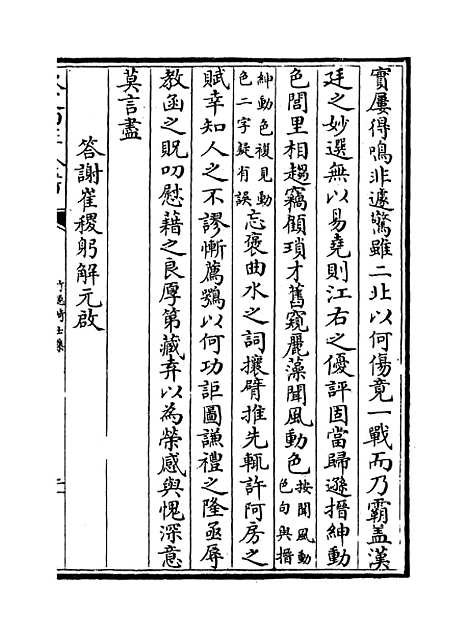 實屢得鳴非遽驚雖二北以何傷竟一戰而乃霸盖漢
廷之妙選無以易堯則江右之優評固當歸遜搢紳動
色閭里相趨竊顧瑣才舊窺麗藻聞風動色按聞風動色句與搢
紳動色複見動色二字疑有誤忘褒曲水之詞攘臂推先輒許阿房之
賦幸知人之不謬慚薦鶚以何功詎圖謙禮之隆亟辱
教函之貺叨慰藉之良厚第藏弆以為榮感與愧深意
莫言盡
答謝崔稷躬解元啟